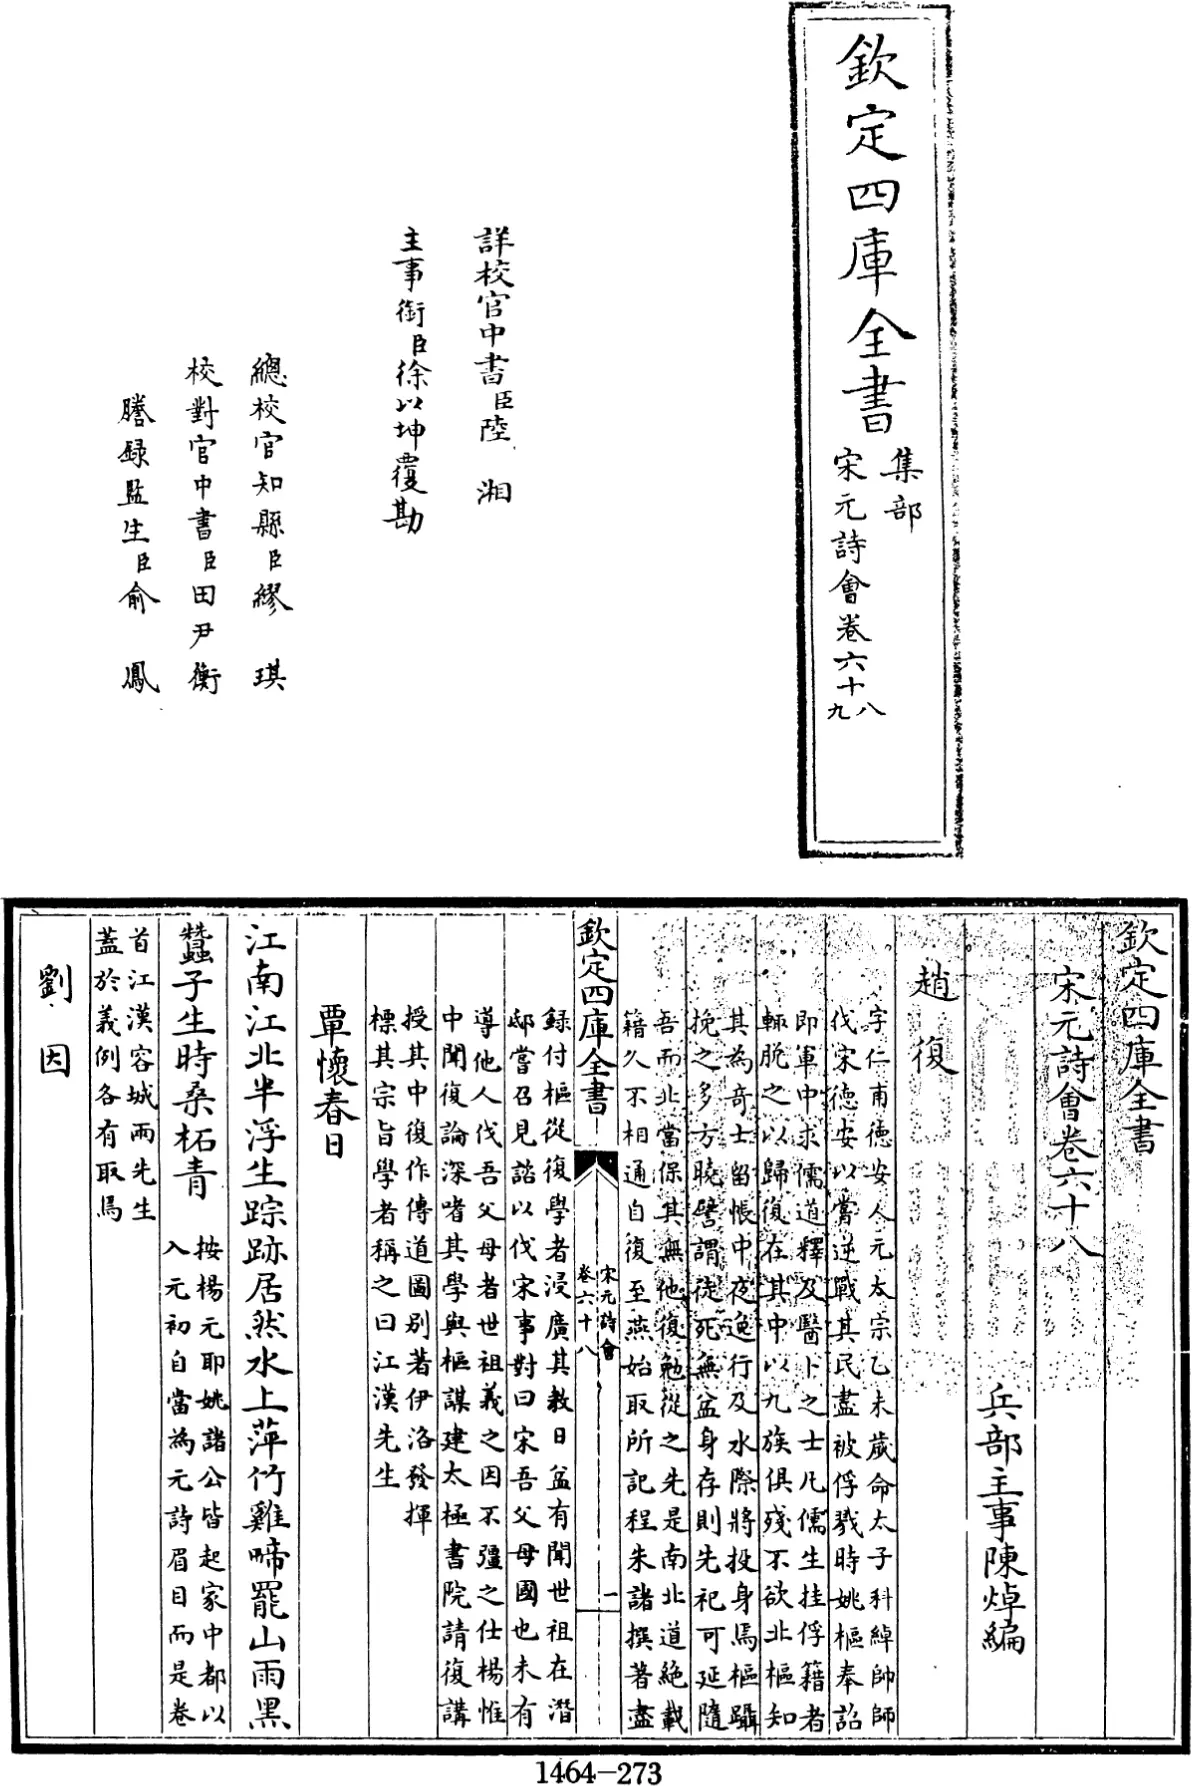 欽定四庫全書
集部
宋元詩會卷六十八
九
詳校官中書臣陸湘
主事銜臣徐以坤覆勘
總校官知縣臣繆琪
校對官中書臣田尹衡
謄録監生臣俞鳳
欽定四庫全書
宋元詩會卷六十八
兵部主事陳焯編
趙復
字仁甫徳安人元太宗乙未歲命太子科綽帥師
伐宋德安以嘗逆戰其民盡被俘戮時姚樞奉詔
即軍中求儒道釋及醫卜之士凡儒生挂俘籍者
輙脫之以歸復在其中以九族俱殘不欲北樞知
其為奇士留帳中夜逸行及水際將投身焉樞躡
挽之多方曉譬謂徒死無益身存則先祀可延隨
吾而北當保其無他復勉從之先是南北道絶載
籍久不相通自復至燕始取所記程朱諸撰著盡
欽定四庫全書
宋元詩會
卷六十八
一
録付樞從復學者浸廣其教日益有聞世祖在潜
邸嘗召見諮以伐宋事對曰宋吾父母國也未有
導他人伐吾父母者世祖義之因不彊之仕楊惟
中聞復論深嗜其學與樞謀建太極書院請復講
授其中復作傳道圖别著伊洛發揮
標其宗旨學者稱之曰江漢先生
覃懷春日
江南江北半浮生踪跡居然水上萍竹雞啼罷山雨黑
蠶子生時桑柘青
按楊元耶姚諸公皆起家中都以
入元初自當為元詩眉目而是卷
首江漢容城兩先生
葢於義例各有取焉
劉因
1464-273